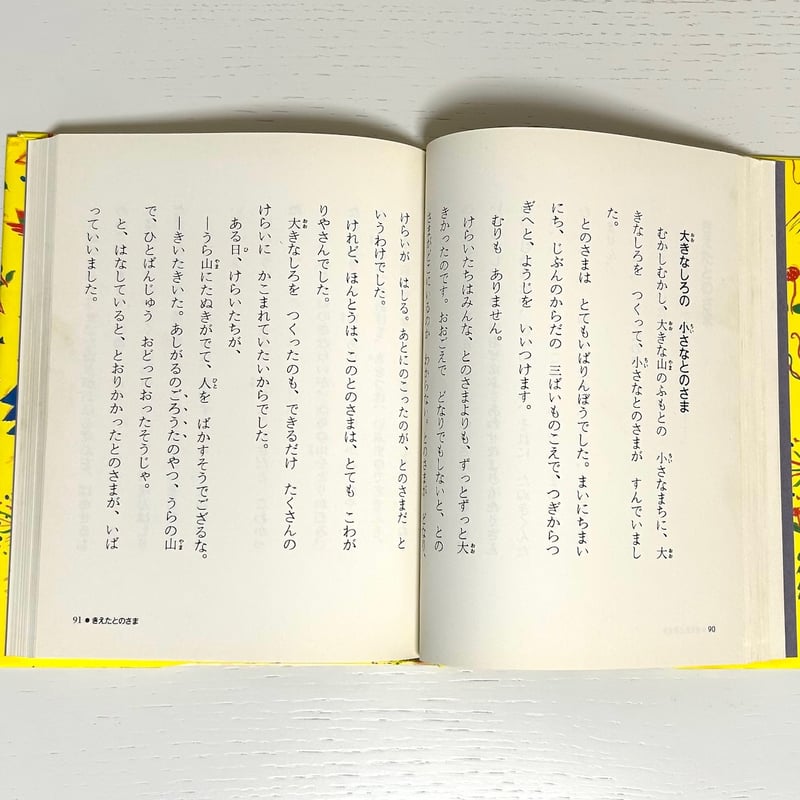 大きなしろの　小さなとのさま
むかしむかし、大きな山のふもとの　小さなまちに、大
きなしろを　つくって、小さなとのさまが　すんでいまし
た。
とのさまは　とてもいばりんぼうでした。まいにちまい
にち、じぶんのからだの　三ばいものこえで、つぎからつ
ぎへと、ようじを　いいつけます。
むりも　ありません。
けらいたちはみんな、とのさまよりも、ずっとずっと大
きかったのです。おおごえで　どなりでもしないと、との
さまがどこにいるのか　わからない。とのさまが　どなり、
90
けらいが　はしる。あとにのこったのが、とのさまだ　と
いうわけでした。
けれど、ほんとうは、このとのさまは、とても　こわが
りやさんでした。
大きなしろを　つくったのも、できるだけ　たくさんの
けらいに　かこまれていたいからでした。
ある日、けらいたちが、
―うら山にたぬきがでて、人を　ばかすそうでござるな。
―きいたきいた。あしがるのごろうたのやつ、うらの山
で、ひとばんじゅう　おどっておったそうじゃ。
と、はなしていると、とおりかかったとのさまが、いば
っていいました。
91●きえたとのさま